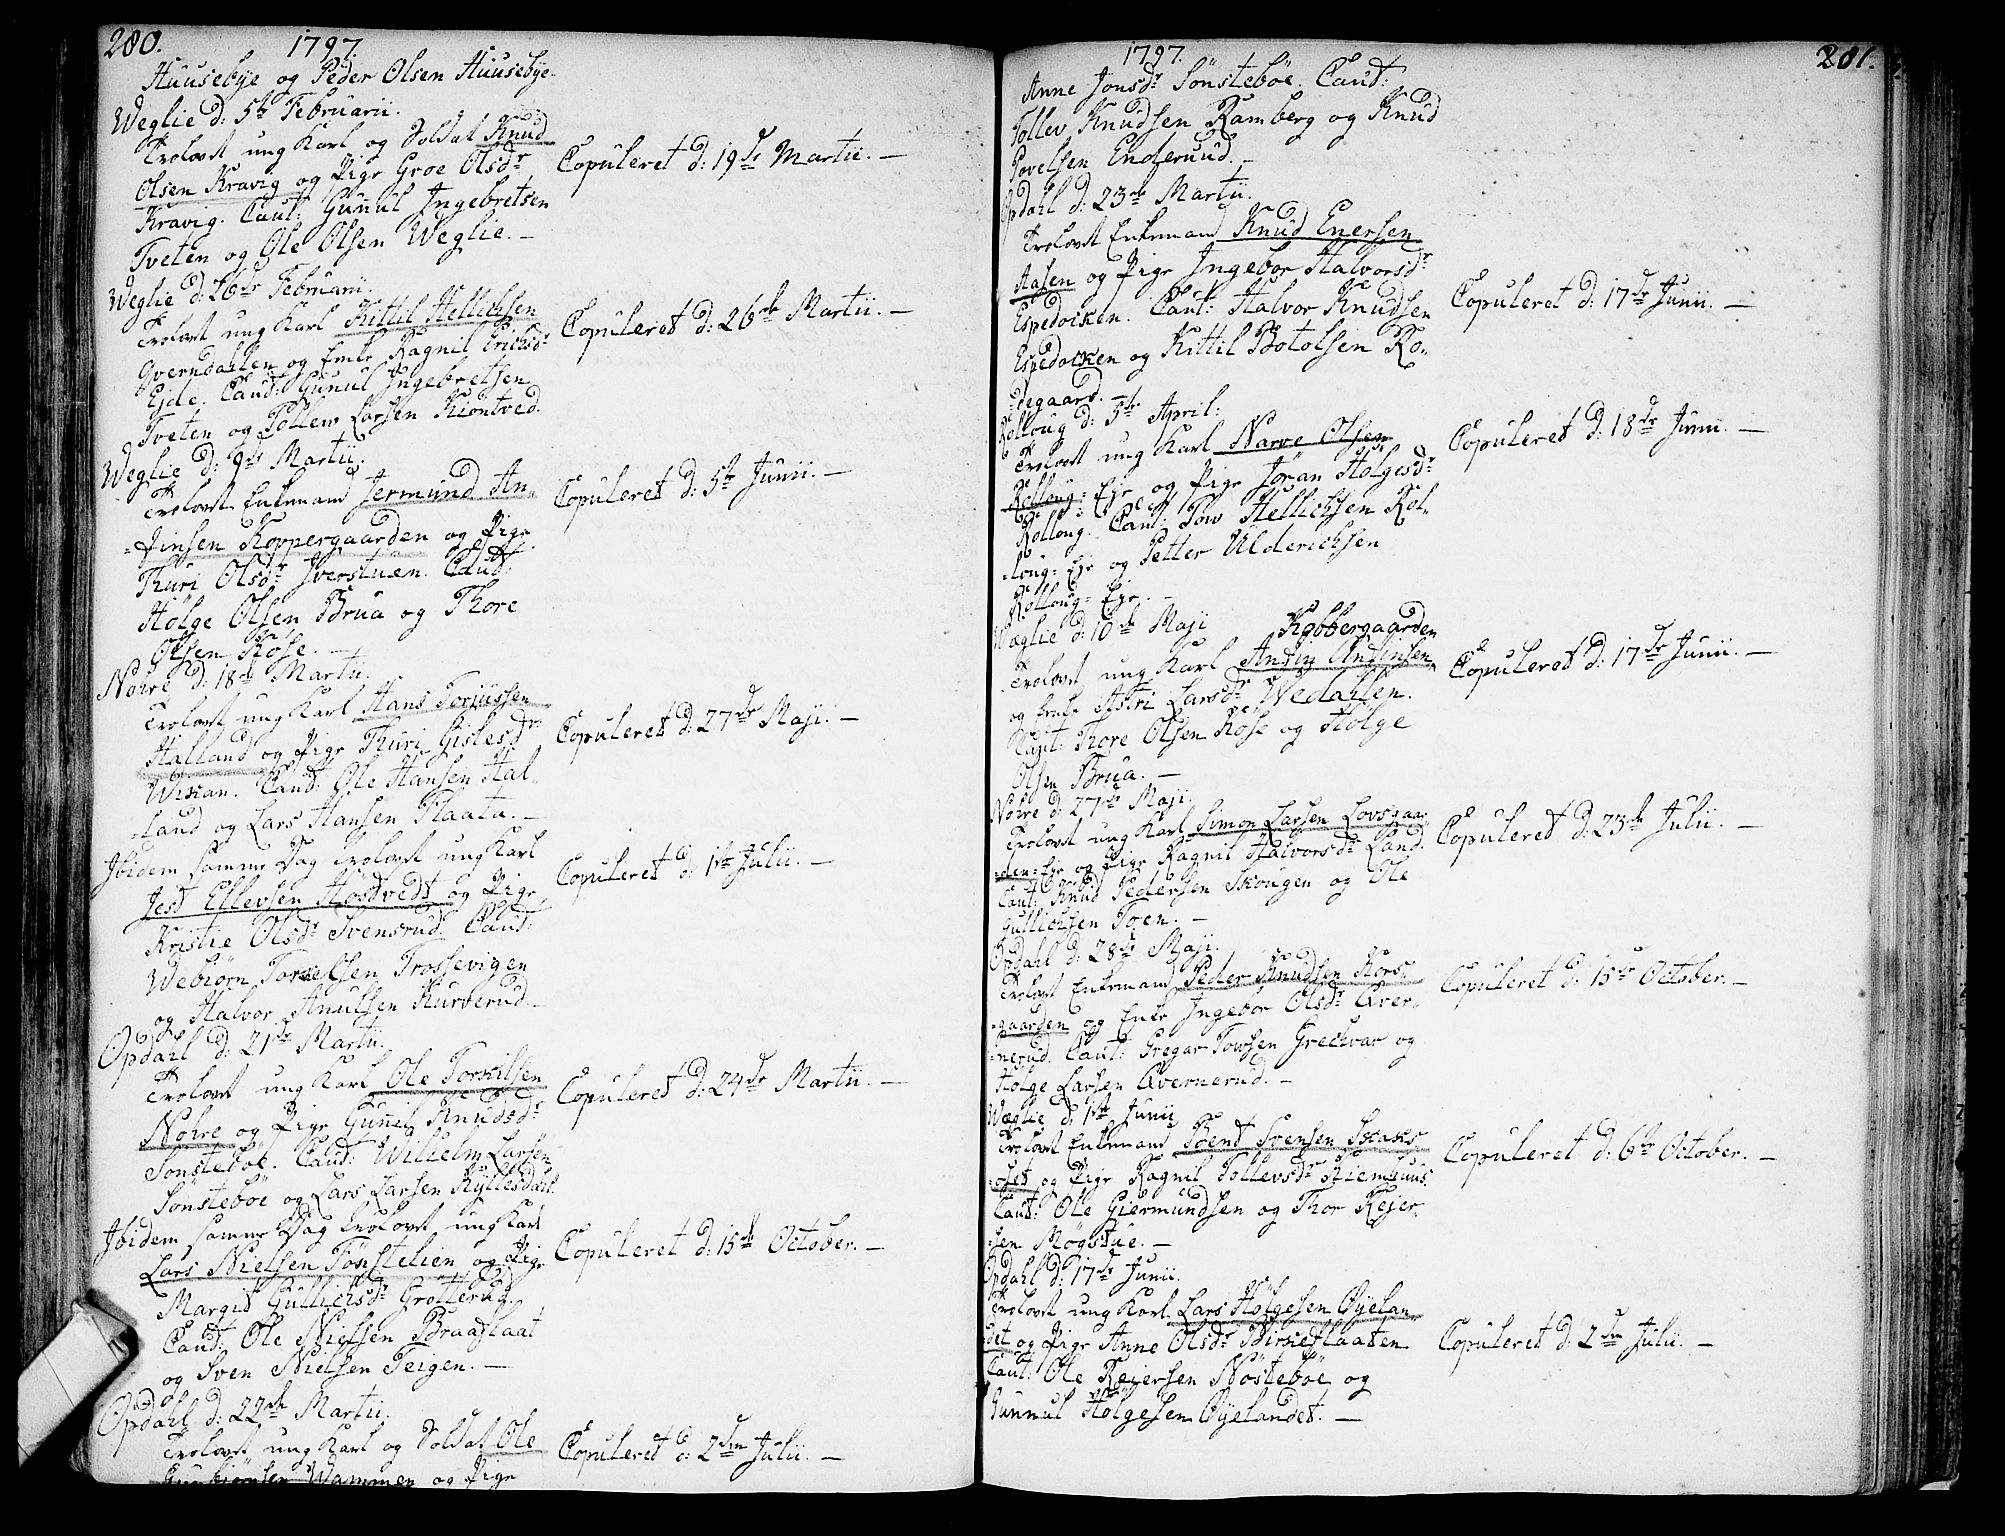 280.
1797.
Huusebye og Peder Olsen Huusebye.
Weglie d: 5te Februarii.
Trolovet ung Karl og Soldat Knud
Olsen Kravig og Pige Groe Olsdr
Kravig. Caut: Gunnul Ingebretsen
Tveten og Ole Olsen Weglie. —
Copuleret d: 19de Martii. —
Weglie d: 26de Februarii.
Trolovet ung Karl Kittil Hellichsen
Qverndahlen og Enke Ragnil Erichsdr
Ejde. Caut: Gunnul Ingebretsen
Tveten og Tollew Larsen Kiontved.
Copuleret d: 26de Martii. —
Weglie d: 9de Martii.
Trolovet Enkemand Jermund An-
-finsen Koppergaarden og Pige
Thuri Olsdr Iverstuen. Caut:
Holge Olsen Brua og Thore
Olsen Kose. —
Copuleret d: 5te Junii. —
Nohre d: 18de Martii.
Trolovet ung Karl Hans Torjussen
Halland og Pige Thuri Gislesdr
Wikan. Caut: Ole Hansen Hal-
-land og Lars Hansen Flaata. —
Copuleret d: 27de Maji. —
Ibidem samme Dag trolovet ung Karl
Jest Ellevsen Hostvedt og Pige
Kristie Olsdr Svensrud. Caut:
Webiørn Torkelsen Trossevigen
og Halvor Knutsen Kurverud. —
Copuleret d: 1te Julii. —
Opdahl d: 21de Martii.
Trolovet ung Karl Ole Torkilsen
Nohre og Pige Gunnil Knudsdr
Sønsteböe. Caut: Wilhelm Larsen
Sønsteböe og Lars Larsen Kyllesdahl.
Copuleret d: 24de Martii. —
Ibidem samme Dag trolovet ung Karl
Lars Nielsen Tønstelien og Pige
Margit Gullichsdr Grøtterud
Caut: Ole Nielsen Braaflaat
og Sven Nielsen Teigen. —
Copuleret d: 15de October. —
Opdahl d: 22de Martii.
Trolovet ung Karl og Soldat Ole
Wammen og Pige
Copuleret d: 2den Julii. —
1797.
281.
Anne Jonsdr Sönsteböe. Caut:
Tollev Knudsen Ramberg og Knud
Povelsen Enderud. —
Opdahl d: 23de Martii.
Trolovet Enkemand Knud Enersen
Aasen og Pige Ingebor Halvorsdr
Espedocken. Caut: Halvor Knudsen
Espedocken og Kittil Botolsen Ro-
-degaard. —
Copuleret d: 17de Junii. —
Rolloug d: 5te April:
Trolovet ung Karl Narve Olsen
Rolloug-Eje og Pige Jöran Holgesdr
Rolloug. Caut: Tow Hellichsen Rol-
-loug-Eje og Petter Ulderichsen
Rolloug-Eje. —
Copuleret d: 18de Junii. —
Weglie d: 10de Maji
Kobbergaarden
Trolovet ung Karl Anfin Anfinsen
og Enke Astri Larsdr Wedahlen.
Caut: Thore Olsen Kose og Holge
Olsen Brua. —
Copuleret d: 17de Junii. —
Nohre d: 27de Maji.
Trolovet ung Karl Simon Larsen Lovsgaar-
-den-Eje og Pige Ragnil Halvorsdr Land.
Caut: Knud Pedersen Skougen og Ole
Gullichsen Toen. —
Copuleret d: 23de Julii. —
Opdahl d: 28de Maji.
Trolovet Enkemand Peder Knudsen Kors-
-gaarden og Enke Ingebor Olsdr Qver-
-nerud. Caut: Gregar Towsen Greckvar og
Holge Larsen Qvernerud. —
Copuleret d: 15de October. —
Weglie d: 1te Junii
Trolovet Enkemand Svensen
og Pige Ragnil Tollevsdr
Caut: Ole Giermundsen og Thor Rejer-
-sen Mögstue. —
Copuleret d: 6te October. —
Opdahl d: 17de Junii.
Trolovet ung Karl Lars Holgesen Øÿelan-
-det og Pige Anne Olsdr Birkeflaaten
Caut: Ole Rejersen Nösteböe og
Gunnul Holgesen Øÿelandet. —
Copuleret d: 2den Julii. —